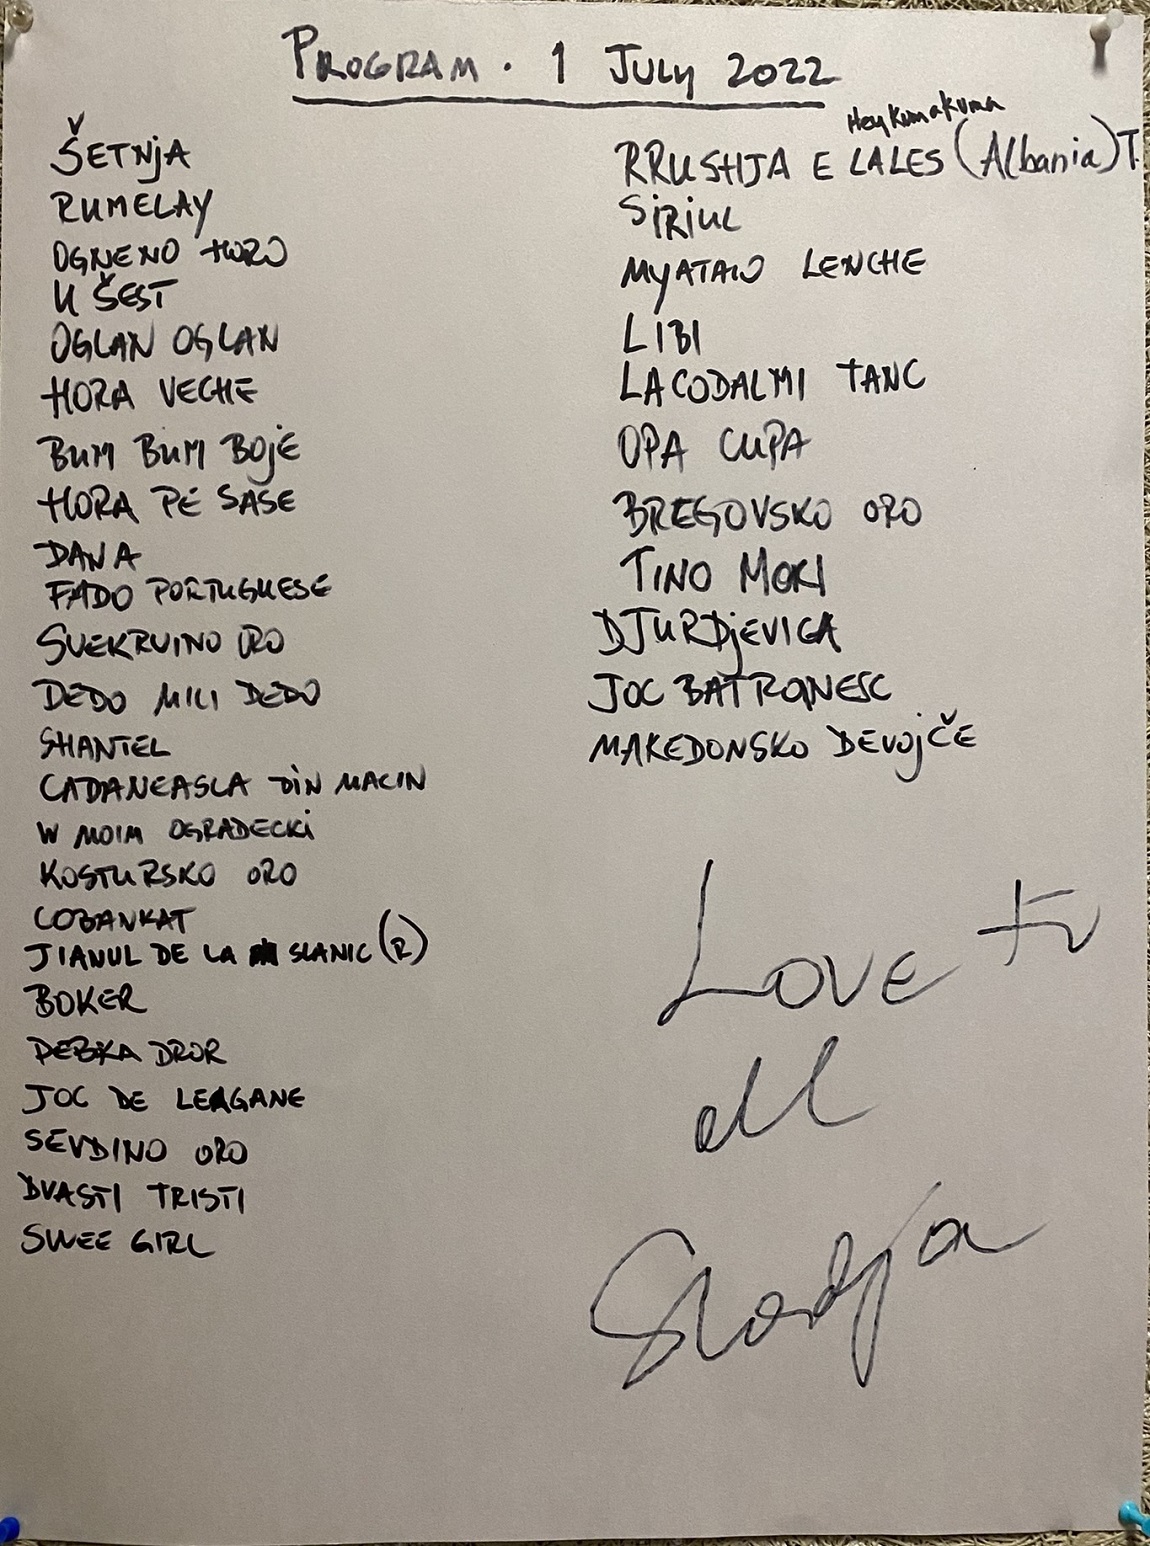 PROGRAM · 1 JULY 2022
ŠETNJA
RUMELAY
OGNENO HORO
U ŠEST
OGLAN OGLAN
HORA VECHE
BUM BUM BOJE
HORA PE SASE
DANA
FADO PORTUGUESE
SVEKRVINO ORO
DEDO MILI DEDO
SHANTEL
CADANEASCA DIN MACIN
W MOIM OGRADECKI
KOSTURSKO ORO
COBANKAT
JIANUL DE LA SLANIC (R)
BOKER
DEBKA DROR
JOC DE LEAGANE
SEVDINO ORO
DVASTI TRISTI
SWEE GIRL
Hey Kuma Kuma
RRUSHJA E LALES (Albania) T.
SIRIUL
MYATALO LENCHE
LIBI
LACODALMI TANC
OPA CUPA
BREGOVSKO ORO
TINO MORI
DJURDJEVICA
JOC BATRANESC
MAKEDONSKO DEVOJČE
Love to
all
Sladja